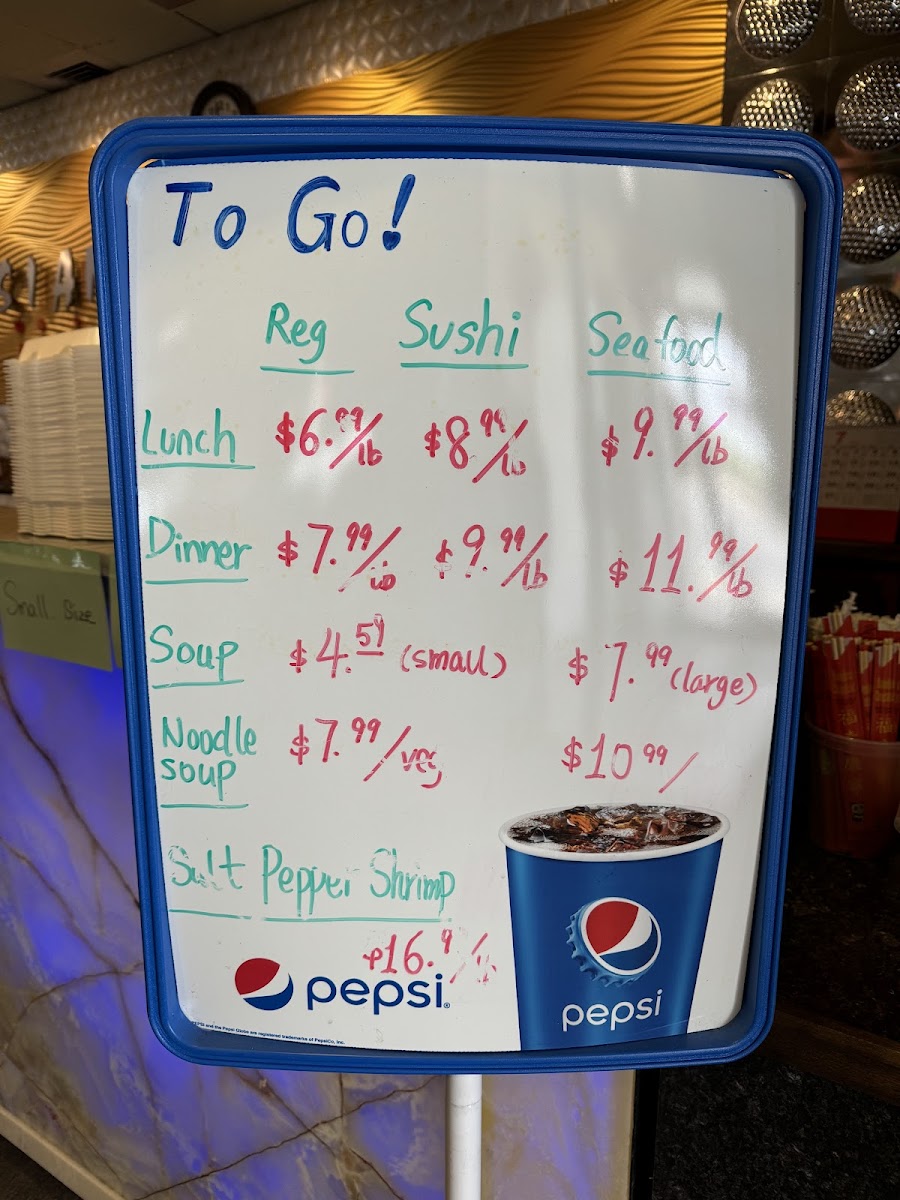 To Go!
Reg Sushi Seafood
Lunch $6.99/lb $8.99/lb $9.99/lb
Dinner $7.99/lb $9.99/lb $11.99/lb
Soup $4.59 (small) $7.99 (large)
Noodle $7.99/veg $10.99/
soup
Salt Pepper Shrimp
$16.9
pepsi
pepsi
PEPSI and the Pepsi Globe are registered trademarks of PepsiCo, Inc.
Small Size